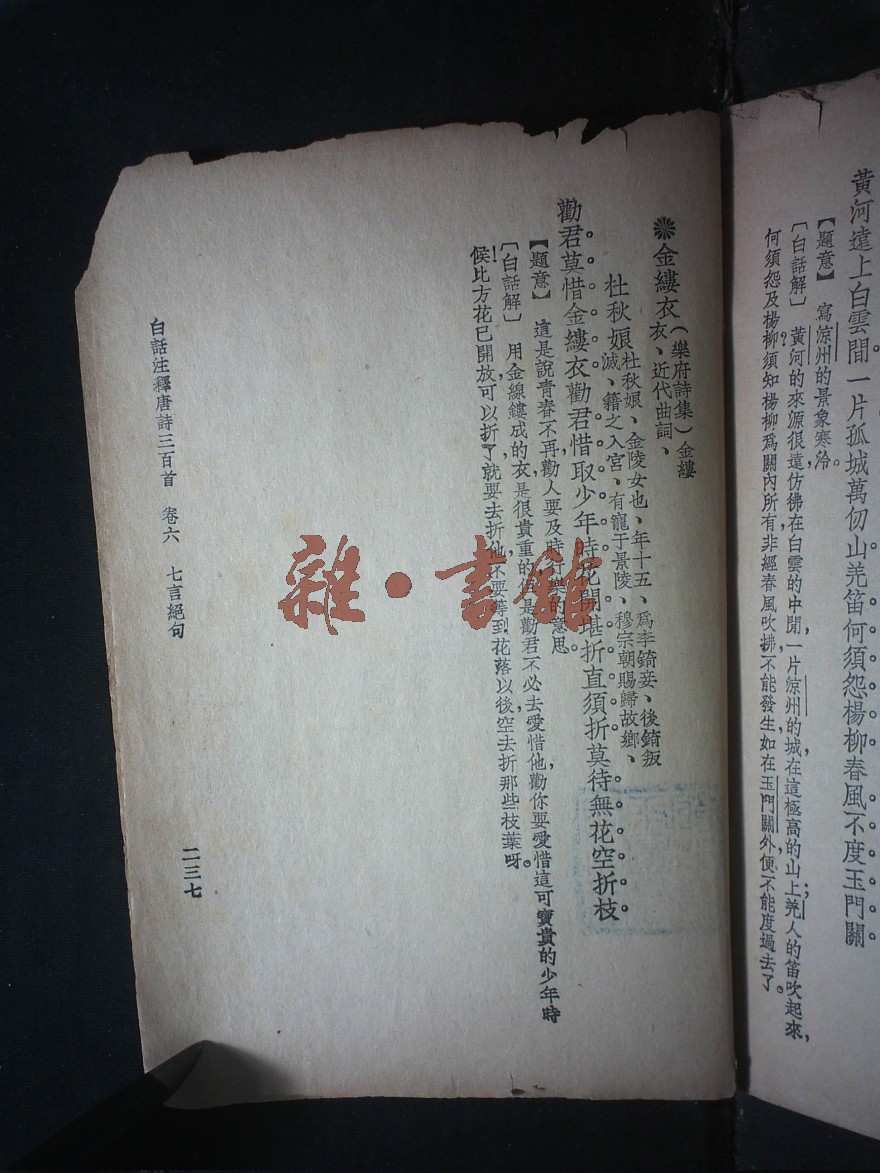 黃河遠上白雲間。一片孤城萬仞山。羌笛何須怨楊柳。春風不度玉門關。
【題意】 寫涼州的景象寒冷。
〔白話解〕 黃河的來源很遠,仿彿在白雲的中間,一片涼州的城,在這極高的山上;羌人的笛吹起來,
何須怨及楊柳?須知楊柳爲關內所有,非經春風吹拂,不能發生,如在玉門關外,便不能度過去了。
金縷衣(樂府詩集)金縷
衣、近代曲詞、
杜秋娘杜秋娘、金陵女也、年十五、爲李錡妾、後錡叛
滅、籍之入宮、有寵于景陵、穆宗朝賜歸故鄉、
勸君莫惜金縷衣。勸君惜取少年時。花開堪折直須折。莫待無花空折枝。
【題意】 這是說青春不再,勸人要及時行樂的意思。
〔白話解〕 用金線鏤成的衣,是很貴重的,但是勸君不必去愛惜他,勸你要愛惜這可寶貴的少年時
候!比方花已開放,可以折了,就要去折他,不要等到花落以後,空去折那些枝葉呀。
白話注釋唐詩三百首 卷六 七言絕句
二三七
雜·書館